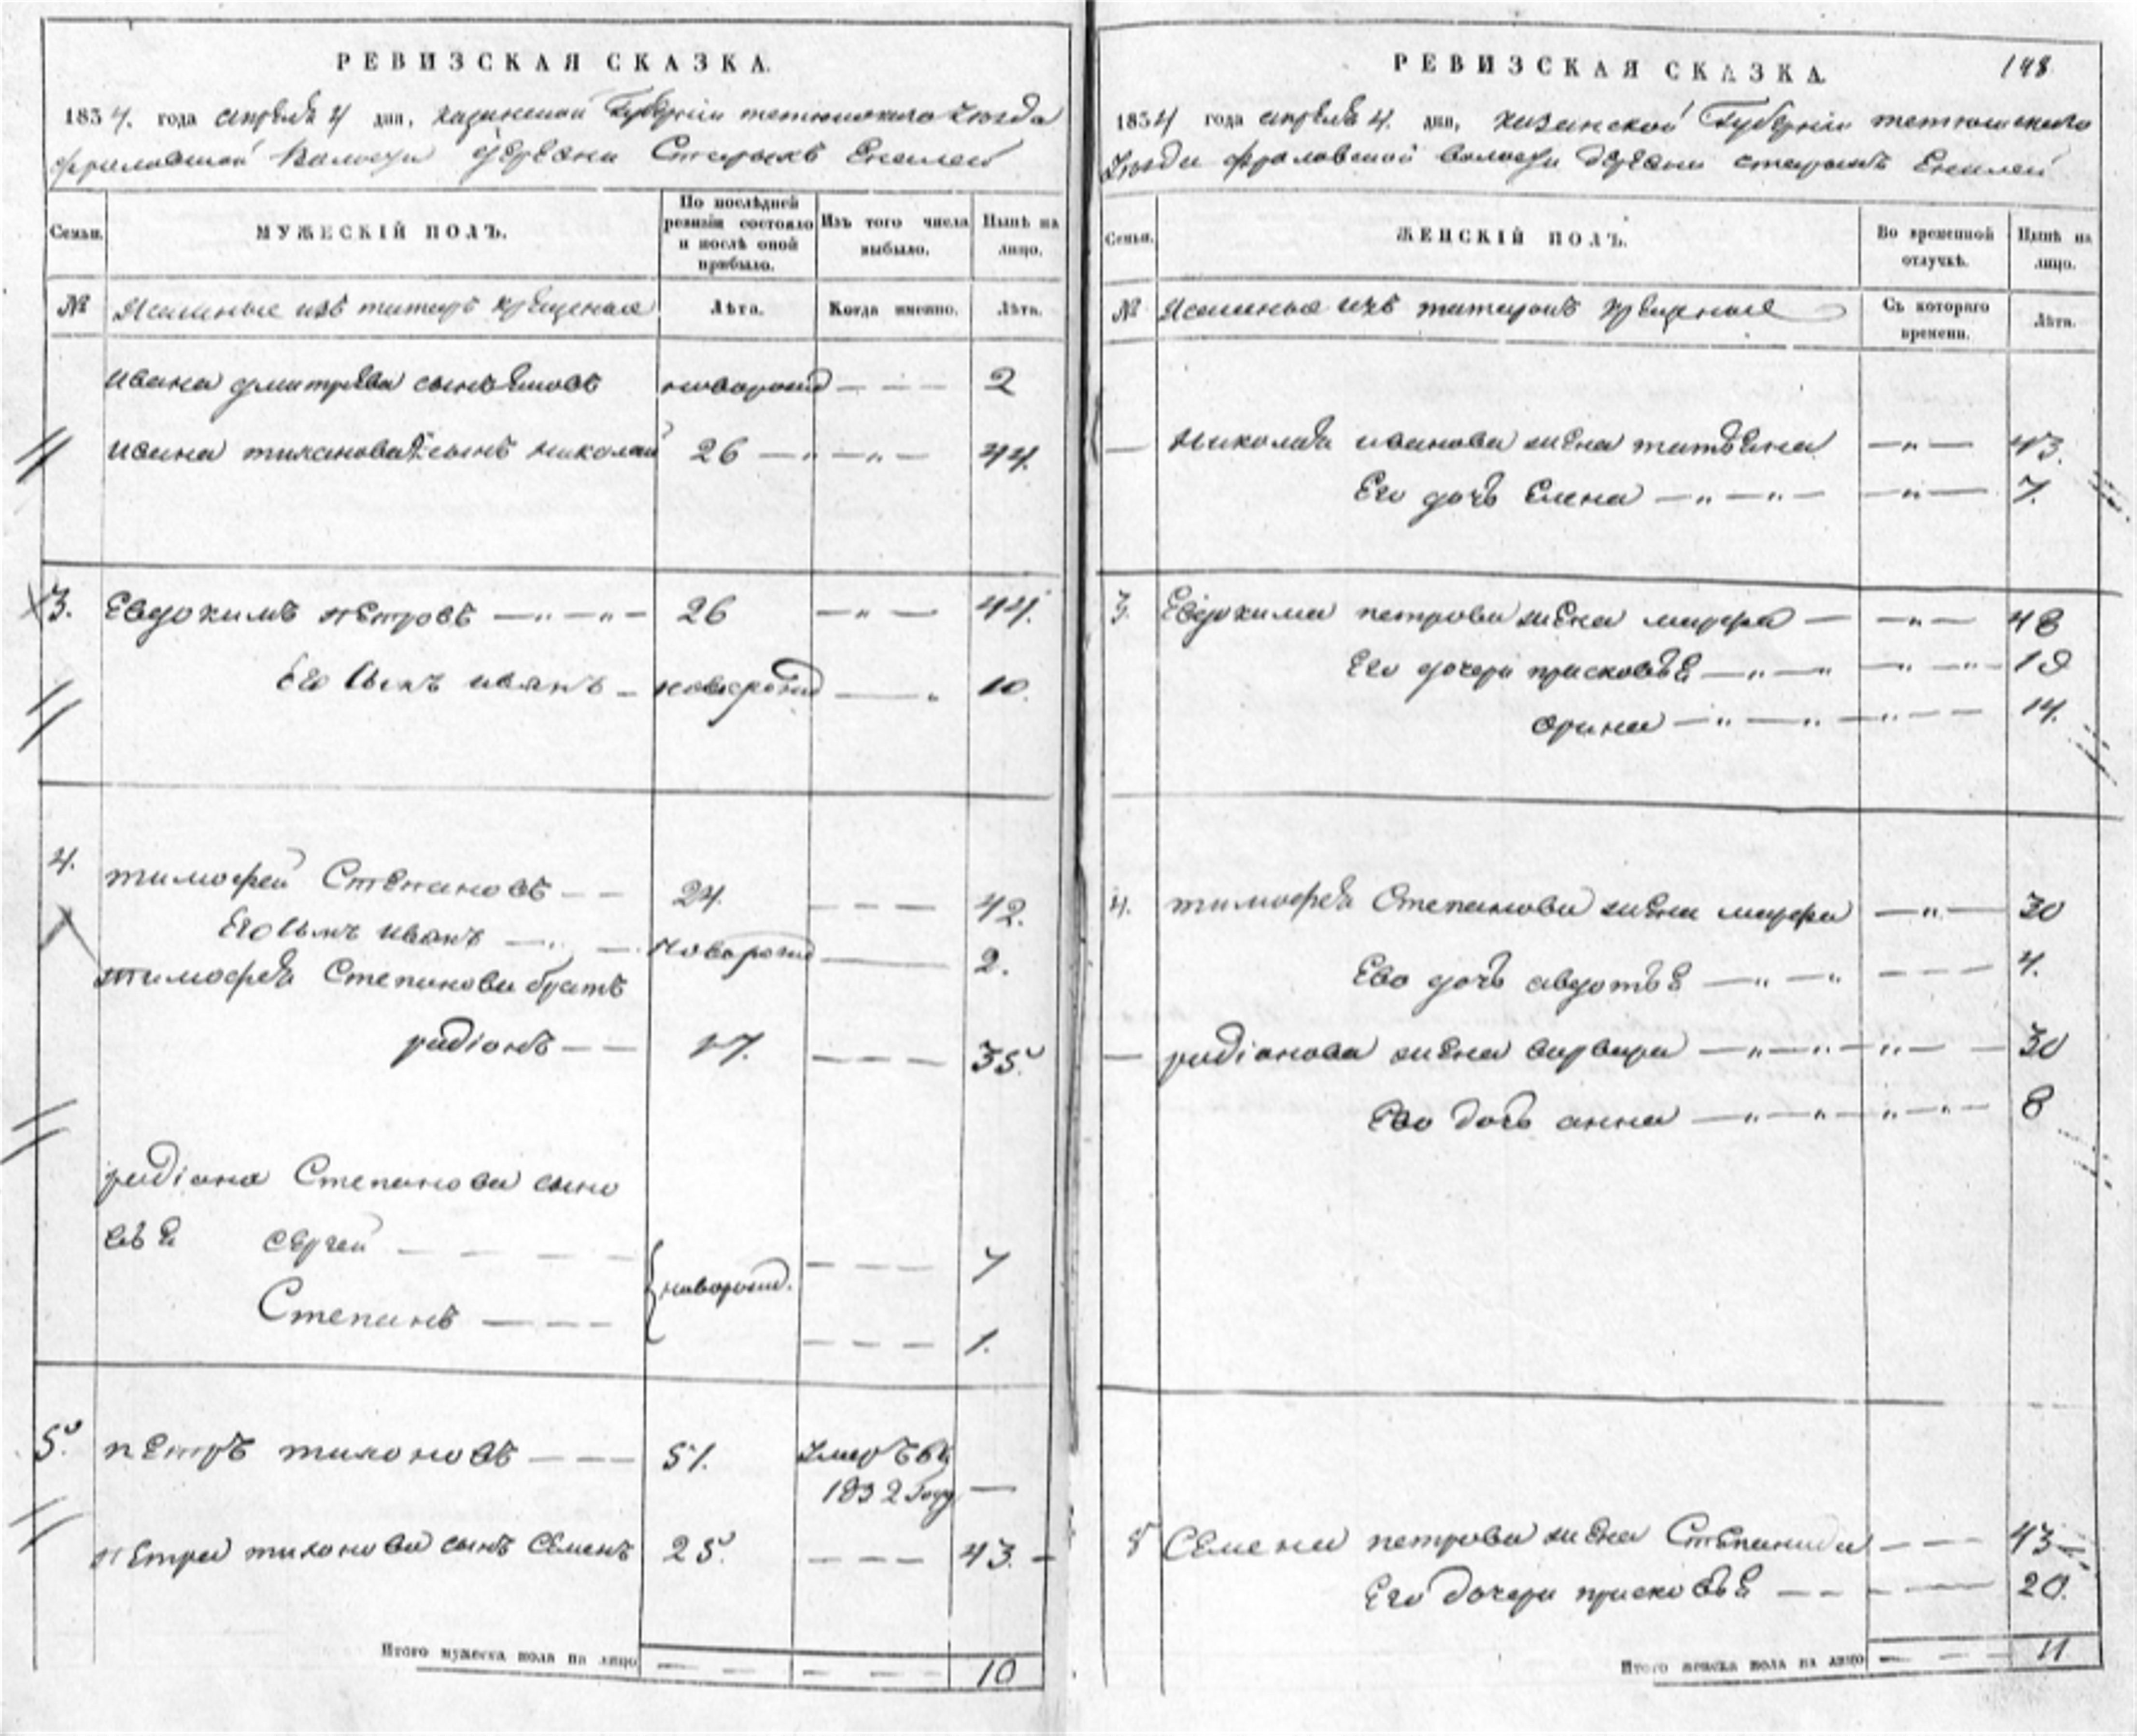 РЕВИЗСКАЯ СКАЗКА.
1834. года апреля 4 дня, казанской Губернiи тетюшскаго Уезда
фроловской Волости деревни Старыхъ Енали
Семьи.
МУЖЕСКIЙ ПОЛЪ.
По послѣдней ревизiи состояло и послѣ оной прибыло.
Изъ того числа выбыло.
Нынѣ на лицо.
№
Ясашные изъ татаръ крещеные
Лѣта.
Когда именно.
Лѣта.
Ивана дмитрева сынъ новорожд 2
Ивана тиханова сынъ николай 26 44.
3. Евдокимъ петровъ 26 44.
Его сынъ иванъ новорожд 10.
4. тимофей Степановъ 24. 42.
Его сынъ иванъ новорожд 2.
тимофея Степанова братъ
радiонъ 17. 35.
радiона Степанова сыно
вья сергей 7
новорожд.
Степанъ 1.
5. петръ тихоновъ 51. Умеръ въ
1832 Году
петра тихонова сынъ Семенъ 25. 43.
Итого мужеска пола на лицо 10
РЕВИЗСКАЯ СКАЗКА.
148
1834 года апреля 4. дня, казанской Губернiи тетюшскаго
Уезда фроловской волости деревни старыхъ Енали
Семьи.
ЖЕНСКIЙ ПОЛЪ.
Во временной отлучкѣ.
Нынѣ на лицо.
№
Ясашные изъ татаръ крещеные
Съ котораго времени.
Лѣта.
Николая иванова жена татьяна 43.
Его дочь Елена 7.
3. Евдокима петрова жена марфа 48
Его дочери прасковья 19
орина 14.
4. тимофея Степанова жена марфа 30
Ево дочь авдотья 4.
радiонова жена варвара 30
Ево дочь анна 8
5 Семена петрова жена Степанида 43
Его дочери прасковья 20.
Итого женска пола на лицо 11